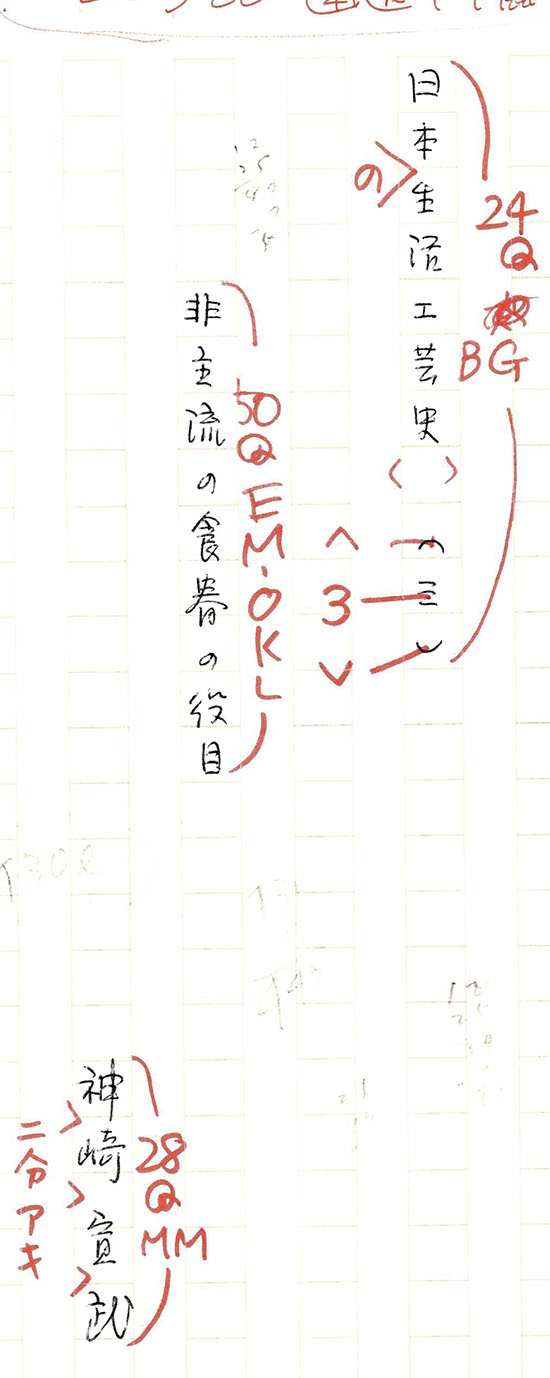 24Q BG
日本生活工芸史〈三〉
の
〈3〉
50Q EM・OKL
非主流の食器の役目
28Q MM
神崎宣武
二分アキ